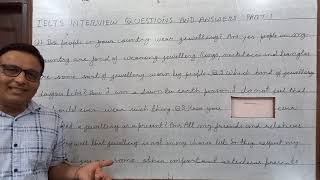 IELTS INTERVIEW QUESTIONS AND ANSWERS PART 1
Q1 Do people in your country wear jewellery? Ans yes people in my
country are fond of wearing jewellery. Rings, necklaces and bangles
are some sort of jewellery worn by people. Q2 Which kind of jewellery
do you like? Ans I am a down to earth person. I do not
would ever wear such thing. Q3 Have you ever
a jewellery as a present? Ans All my friends and relatives
well that jewellery is not in my so they
me some other important articles as presents